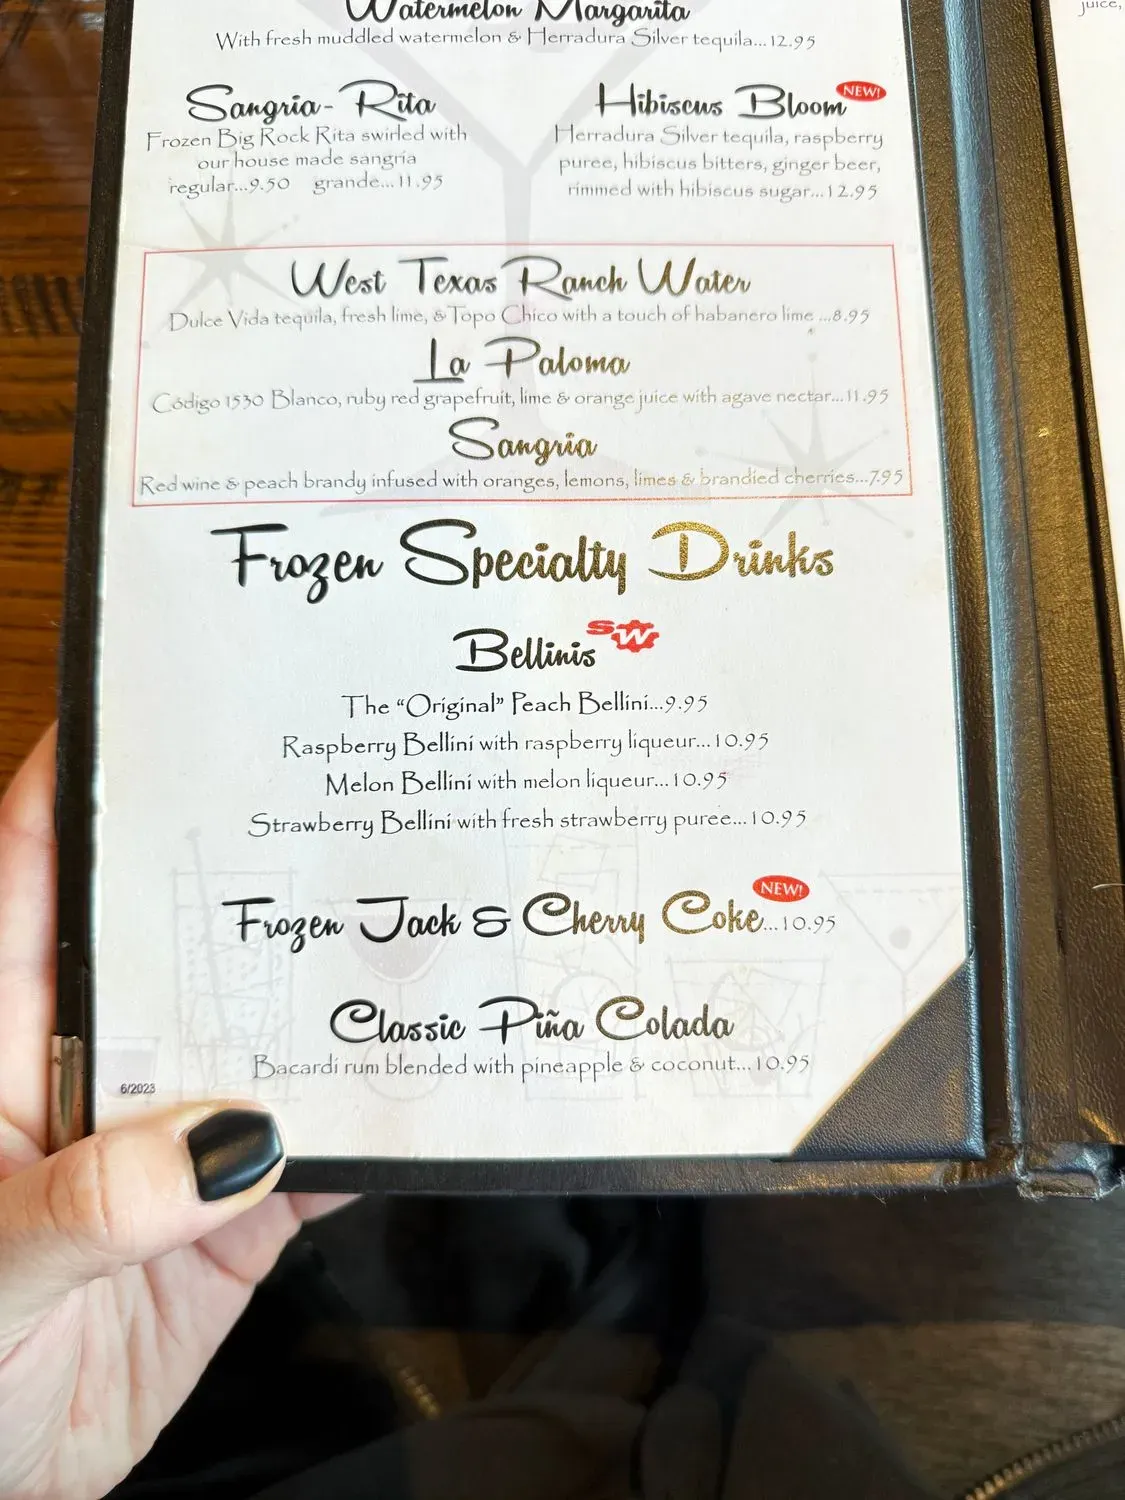 Watermelon Margarita
With fresh muddled watermelon & Herradura Silver tequila...12.95
Sangria-Rita
Frozen Big Rock Rita swirled with
our house made sangria
regular...9.50 grande...11.95
Hibiscus Bloom NEW!
Herradura Silver tequila, raspberry
puree, hibiscus bitters, ginger beer,
rimmed with hibiscus sugar...12.95
West Texas Ranch Water
Dulce Vida tequila, fresh lime, & Topo Chico with a touch of habanero lime ...8.95
La Paloma
Código 1530 Blanco, ruby red grapefruit, lime & orange juice with agave nectar...11.95
Sangria
Red wine & peach brandy infused with oranges, lemons, limes & brandied cherries...7.95
Frozen Specialty Drinks
Bellinis SW
The “Original” Peach Bellini...9.95
Raspberry Bellini with raspberry liqueur...10.95
Melon Bellini with melon liqueur...10.95
Strawberry Bellini with fresh strawberry puree...10.95
Frozen Jack & Cherry Coke...10.95 NEW!
Classic Piña Colada
Bacardi rum blended with pineapple & coconut...10.95
6/2023
juice,